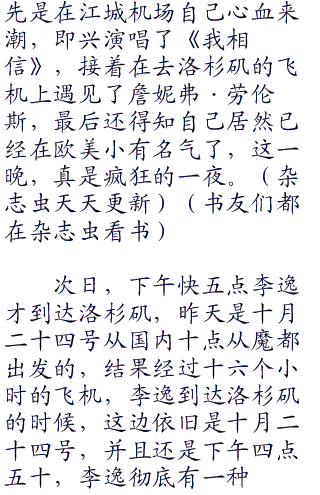 先是在江城机场自己心血来
潮，即兴演唱了《我相
信》，接着在去洛杉矶的飞
机上遇见了詹妮弗·劳伦
斯，最后还得知自己居然已
经在欧美小有名气了，这一
晚，真是疯狂的一夜。（杂
志虫天天更新）（书友们都
在杂志虫看书）
次日，下午快五点李逸
才到达洛杉矶，昨天是十月
二十四号从国内十点从魔都
出发的，结果经过十六个小
时的飞机，李逸到达洛杉矶
的时候，这边依旧是十月二
十四号，并且还是下午四点
五十，李逸彻底有一种